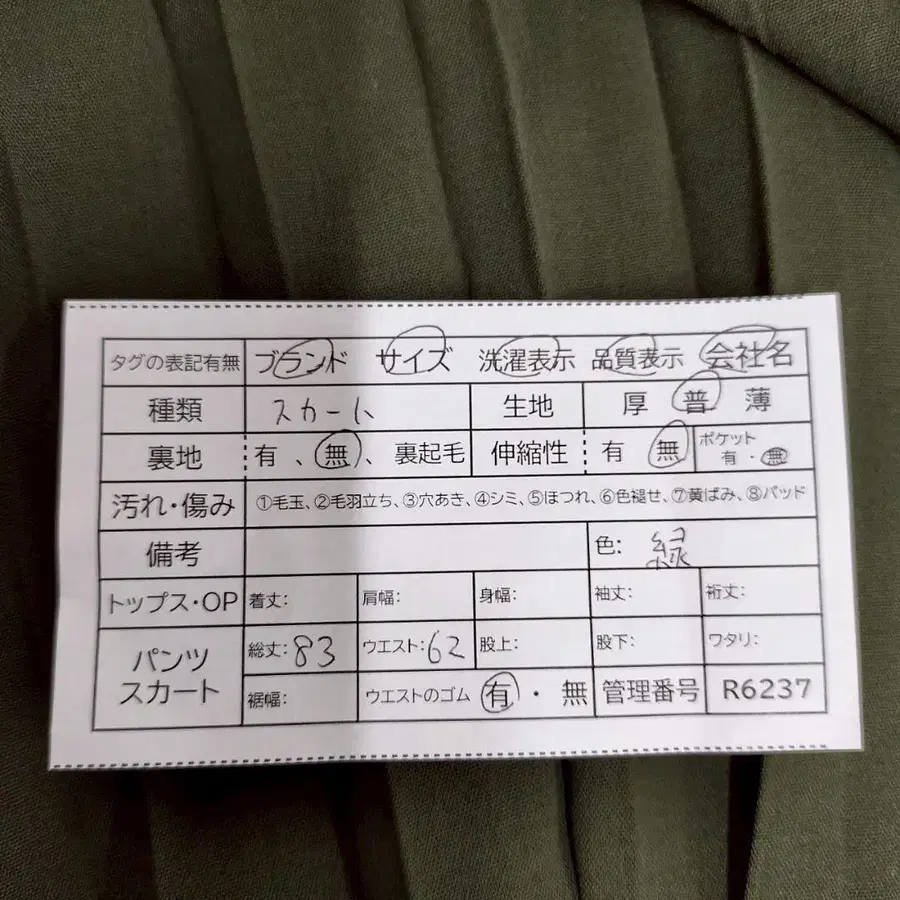 タグの表記有無 ブランド サイズ 洗濯表示 品質表示 会社名
種類 スカート 生地 厚 普 薄
裏地 有、無、裏起毛 伸縮性 有 無 ポケット 有・無
汚れ・傷み ①毛玉、②毛羽立ち、③穴あき、④シミ、⑤ほつれ、⑥色褪せ、⑦黄ばみ、⑧パッド
備考 色: 緑
トップス・OP 着丈: 肩幅: 身幅: 袖丈: 裄丈:
パンツ スカート 総丈:83 ウエスト:62 股上: 股下: ワタリ:
裾幅: ウエストのゴム 有・無 管理番号 R6237